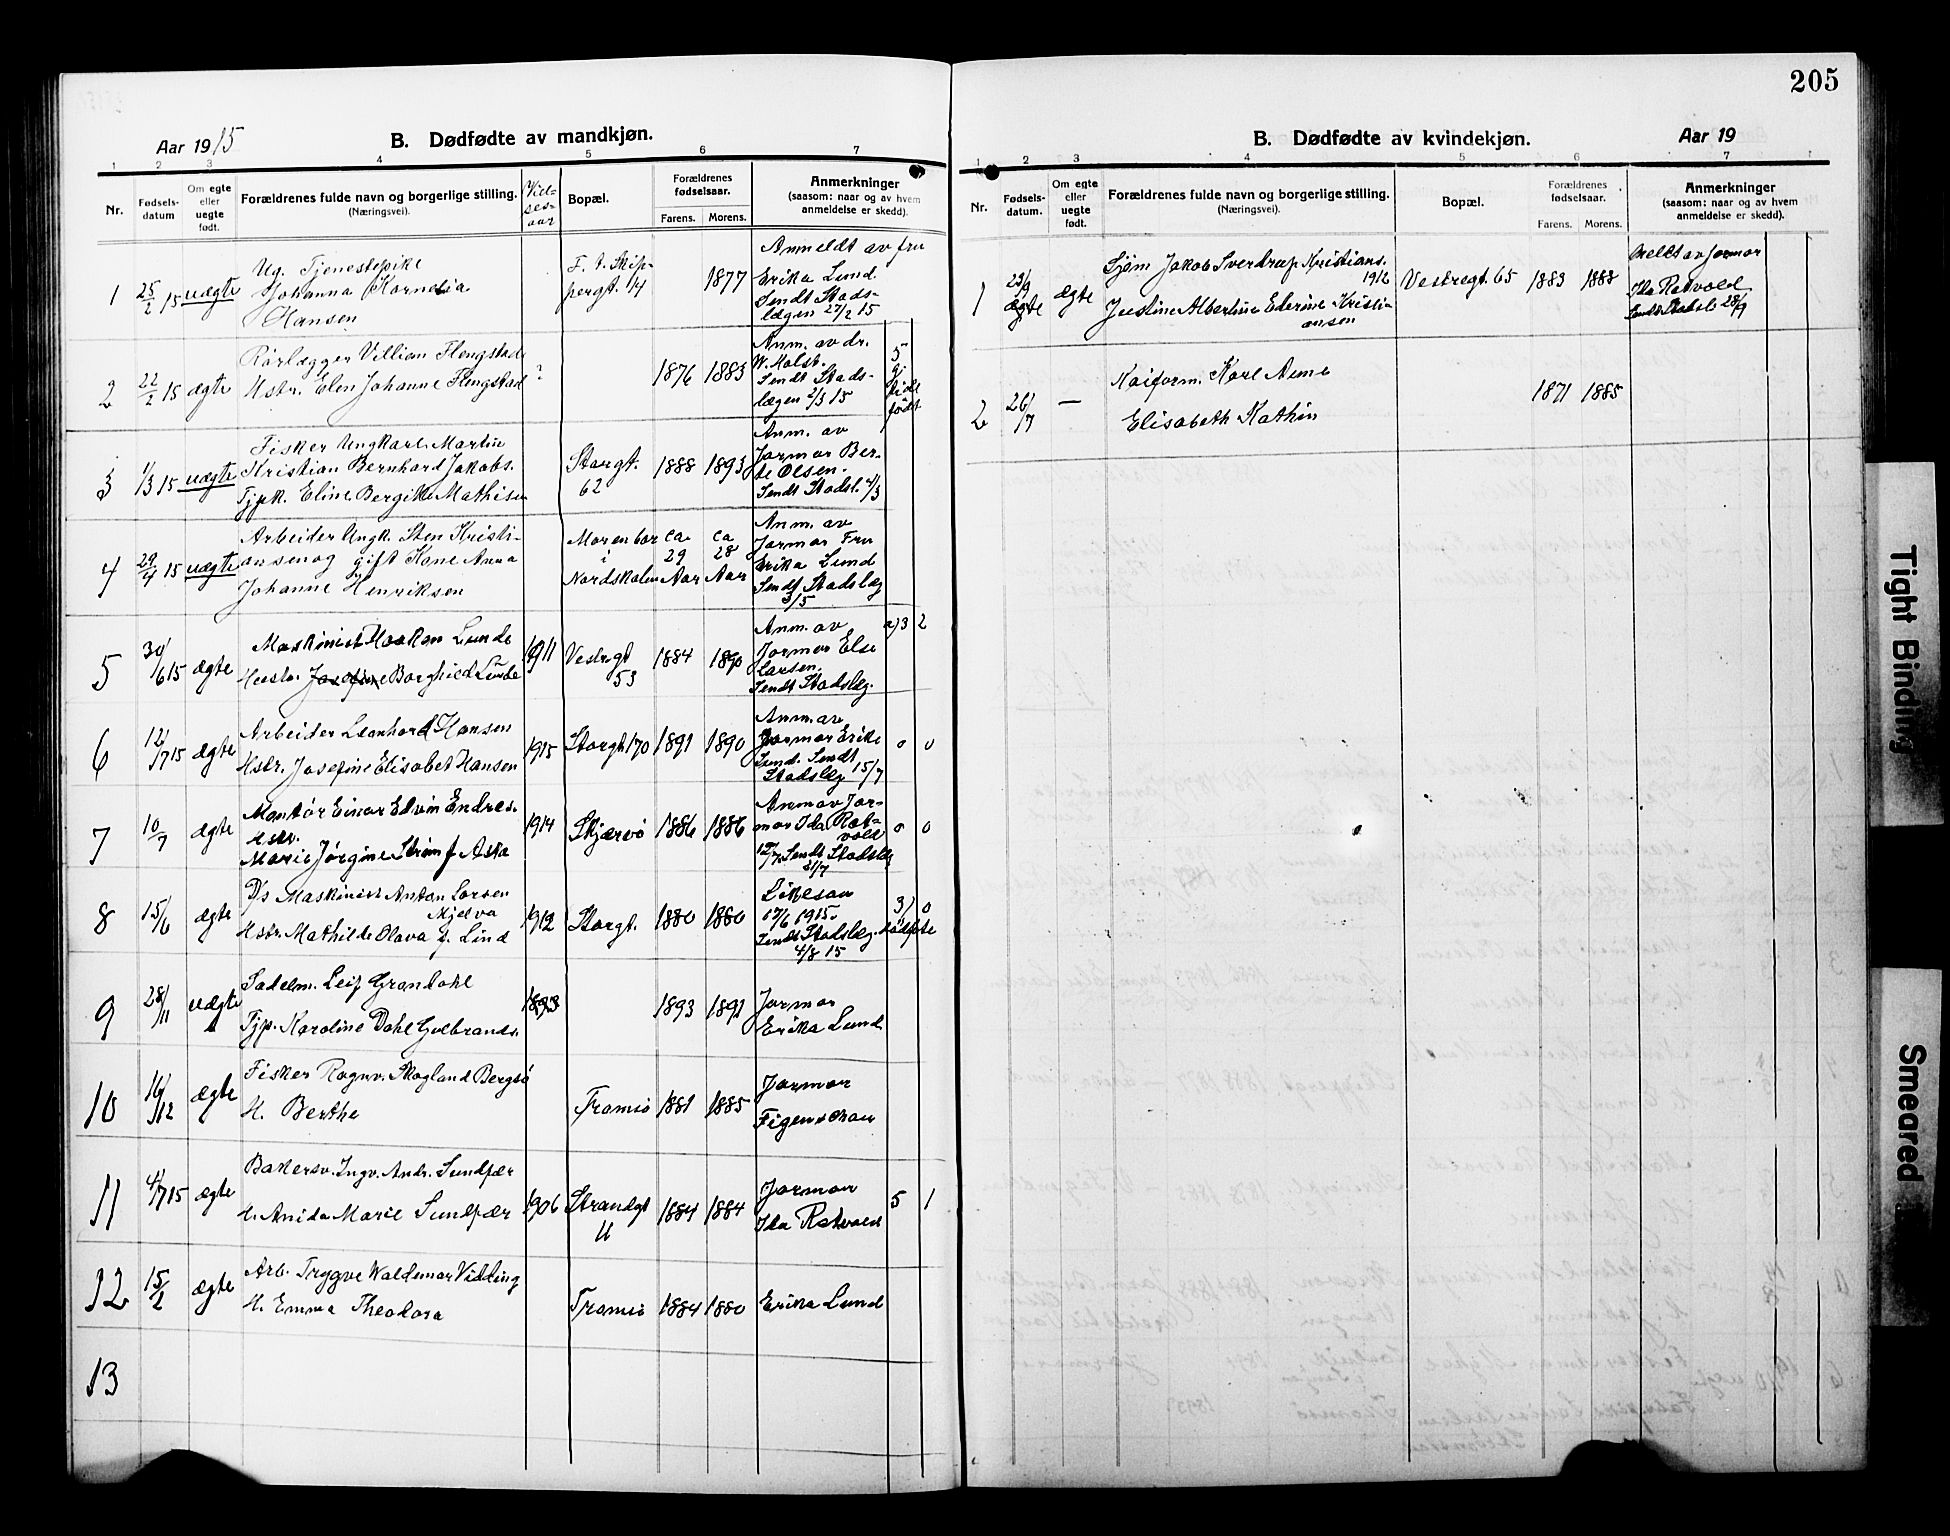 205
Aar 1915
B. Dødfødte av mandkjøn.
1 2 3 4 5 6 7
Nr.
Fødsels-
datum
Om egte
eller
uegte
født.
Forældrenes fulde navn og borgerlige stilling.
(Næringsvei).
Viel-
ses-
aar
Bopæl.
Forældrenes
fødselsaar.
Farens. Morens.
Anmerkninger
(saasom: naar og av hvem
anmeldelse er skedd).
1
25/2 15
uægte
Ug. Tjenestepike
Johanna Kornelia
Hansen
F. t. Skip-
pergt. 14
1877
Anmeldt av fru
Erika Lund
Sendt Stads-
lægen 27/2 15
2
22/2 15
ægte
Rørlægger Villiam Flengstad
Hstr. Elen Johanne Flengstad
?
1876 1883
Anm. av dr.
W. Holst.
Sendt Stads-
lægen 2/3 15
3
1/3 15
uægte
Fisker Ungkarl Martin
Kristian Bernhard Jakobs.
Tjpk. Eline Bergitte Mathisen
Storgt.
62
1888 1893
Anm. av
Jormor Ber-
te Olsen.
Sendt Stadsl. 4/3
4
29/4 15
uægte
Arbeider Ungk. Sten Kristi-
ansen og gift Kone Anna
Johanne Henriksen
i
Nordskalen
ca
29
Aar
ca
28
Aar
Anm. av
Jormor Fru
Erika Lund
Sendt Stadslæg
3/5
5
30/6 15
ægte
Maskinist Haakon Lunde
Hustr. Josefine Borghild Lunde
1911
Vestregt
53
1884 1890
Anm. av
Jormor Else
Larsen.
Sendt Stadslæg.
3 2
6
12/7 15
ægte
Arbeider Leonhard Hansen
Hstr. Josefine Elisabet Hansen
1915
Storgt 170
1891 1890
Anm av
Jormor Erika
Lund. Sendt
Stadslæg 15/7
0 0
7
10/7
ægte
Montør Einar Edvin Endres.
Hstr.
Marie Jørgine Strøm f. Aska
1914
Skjærvø
1886 1886
Anm av Jor-
mor Ida Røt-
vold
Sendt Stadslæg
21/7
0 0
8
15/6
ægte
D/s Maskinist Anton Larsen
Mjelva
Hstr. Mathilde Olava f. Lind
1912
Storgt.
1880 1880
17/6 1915.
Sendt Stadslæg.
4/8 15
3) 0
9
28/11
uægte
Sadelm. Leif Grandahl
Tjp. Karoline Dahl Gulbrands.
1893 1892
Jormor
Erika Lund
10
16/12
ægte
Fisker Ragnv. Skogland Bergsø
H. Berthe
Tromsø
1881 1885
Jormor
Figenschau
11
4/7 15
ægte
Bakersv. Ingv. Andr. Sundfær
H. Anida Marie Sundfær
1906
Strandgt
11
1884 1884
Jormor
Ida Røtvold
5 1
12
15/2
ægte
Arb. Trygve Waldemar Vidding
H. Emma Theodora
Tromsø
1884 1880
Erika Lund
13
B. Dødfødte av kvindekjøn.
Aar 19
1 2 3 4 5 6 7
Nr.
Fødsels-
datum.
Om egte
eller
uegte
født.
Forældrenes fulde navn og borgerlige stilling.
(Næringsvei).
Bopæl.
Forældrenes
fødselsaar.
Farens. Morens.
Anmerkninger
(saasom: naar og av hvem
anmeldelse er skedd).
1
23/9
ægte
ægte
Sjøm Jakob Sverdrup Kristians.
1912
Justine Albertine Ederine Kristi-
ansen
Vestregt. 65
1883 1888
Meldt av jormor
Ida Røtvold
Sendt Stadsl. 28/9
2
26/7
—
Kaiform. Karl Aune
Elisabeth Kathin
1871 1885
Tight Binding
Smeared